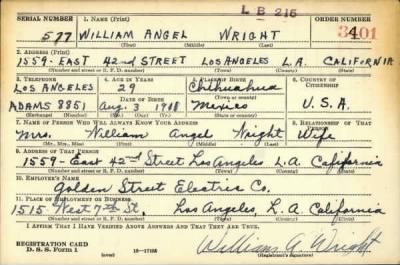 L B 215
SERIAL NUMBER 1. NAME (Print) ORDER NUMBER
577 WILLIAM ANGEL WRIGHT 3401
(First) (Middle) (Last)
2. ADDRESS (Print)
1559-EAST 42nd STREET LOS ANGELES L.A. CALIFORNIA
(Number and street or R. F. D. number) (Town) (County) (State)
3. TELEPHONE 4. AGE IN YEARS 5. PLACE OF BIRTH 6. COUNTRY OF CITIZENSHIP
LOS ANGELES 29 Chihuahua
DATE OF BIRTH (Town or county)
ADAMS 8851 Aug. 3 1911 Mexico U.S.A.
(Exchange) (Number) (Mo.) (Day) (Yr.) (State or country)
7. NAME OF PERSON WHO WILL ALWAYS KNOW YOUR ADDRESS 8. RELATIONSHIP OF THAT PERSON
Mrs. William Angel Wright Wife
(Mr., Mrs., Miss) (First) (Middle) (Last)
9. ADDRESS OF THAT PERSON
1559-East 42nd Street Los Angeles L.A. California
(Number and street or R. F. D. number) (Town) (County) (State)
10. EMPLOYER'S NAME
Golden Street Electric Co.
11. PLACE OF EMPLOYMENT OR BUSINESS
1515 West 7th St. Los Angeles, L.A. California
(Number and street or R. F. D. number) (Town) (County) (State)
I AFFIRM THAT I HAVE VERIFIED ABOVE ANSWERS AND THAT THEY ARE TRUE.
REGISTRATION CARD
D. S. S. Form 1 (over) 16-17105 William A. Wright
(Registrant's signature)